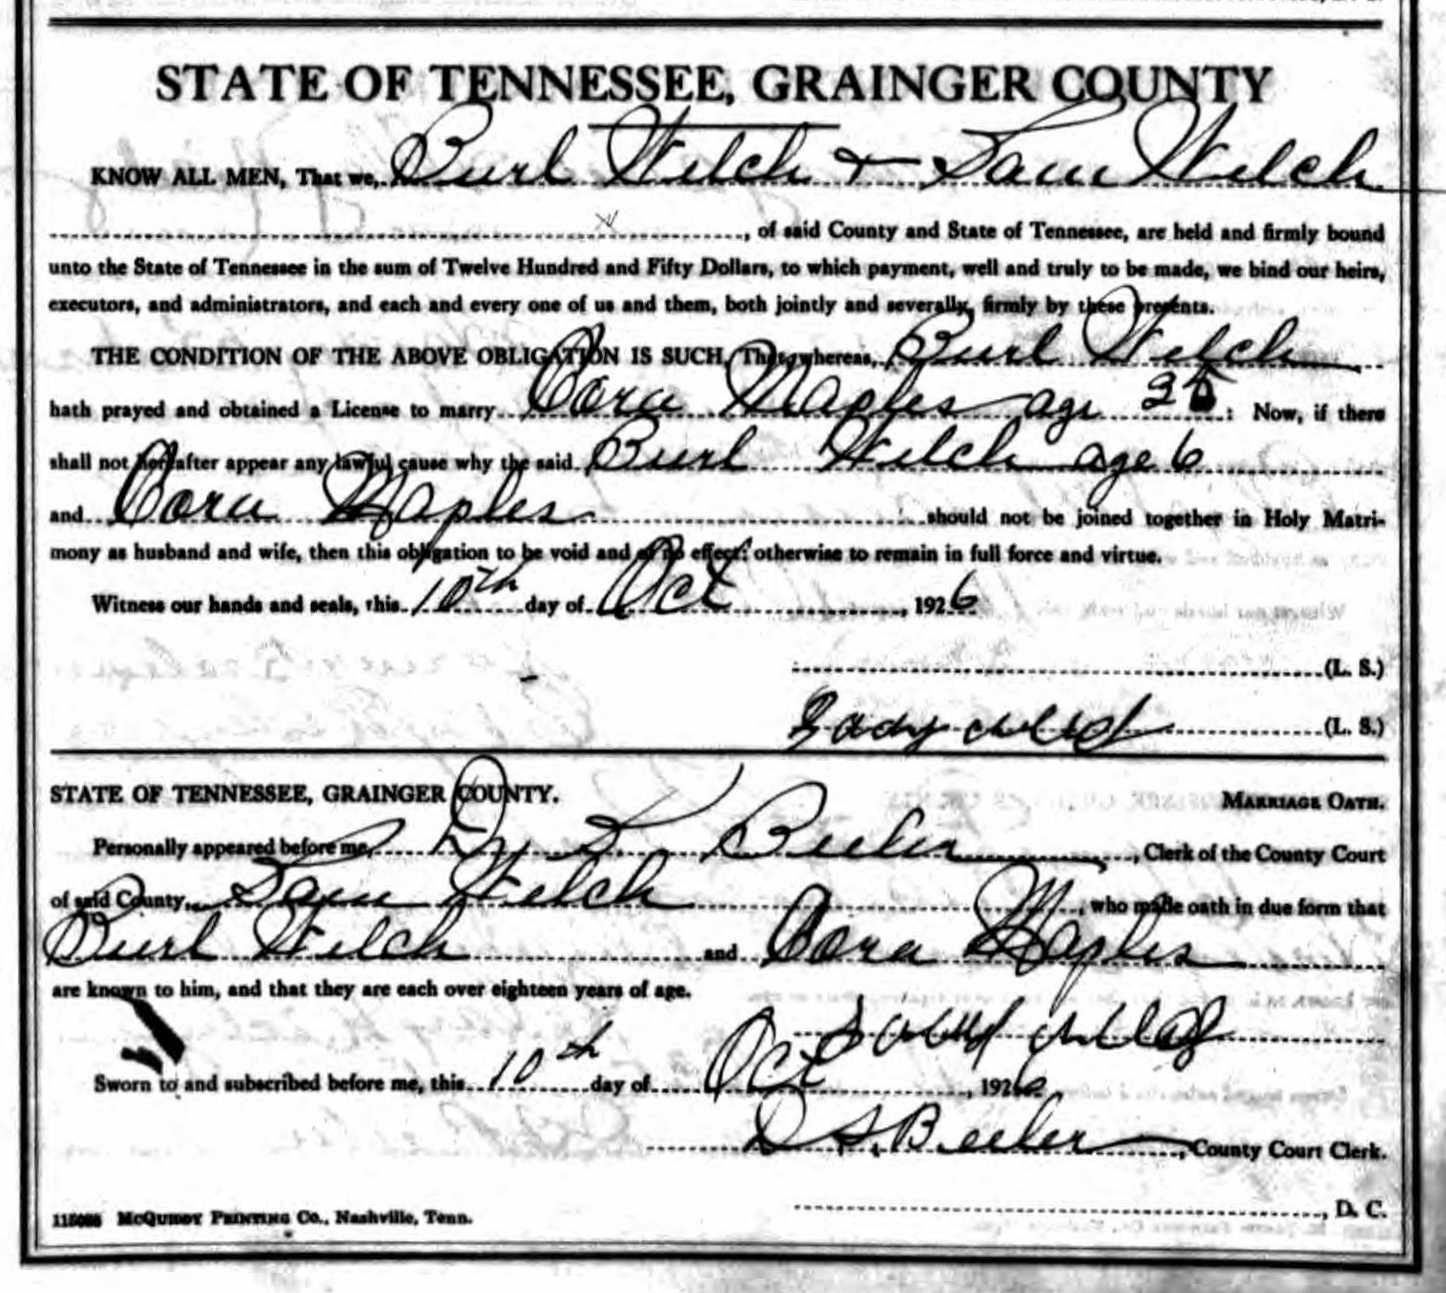 STATE OF TENNESSEE, GRAINGER COUNTY
KNOW ALL MEN, That we, Burl Welch & Sam Welch
, of said County and State of Tennessee, are held and firmly bound
unto the State of Tennessee in the sum of Twelve Hundred and Fifty Dollars, to which payment, well and truly to be made, we bind our heirs,
executors, and administrators, and each and every one of us and them, both jointly and severally, firmly by these presents.
THE CONDITION OF THE ABOVE OBLIGATION IS SUCH, That whereas, Burl Welch
hath prayed and obtained a License to marry Cora Maples age : Now, if there
shall not hereafter appear any lawful cause why the said Burl Welch age 6
and Cora Maples should not be joined together in Holy Matri-
mony as husband and wife, then this obligation to be void and of no effect: otherwise to remain in full force and virtue.
Witness our hands and seals, this 10th day of Oct, 1926
(L. S.)
(L. S.)
STATE OF TENNESSEE, GRAINGER COUNTY. MARRIAGE OATH.
Personally appeared before me, Beeler, Clerk of the County Court
of said County, Sam Welch, who made oath in due form that
Burl Welch and Cora Maples
are known to him, and that they are each over eighteen years of age.
Sworn to and subscribed before me, this 10th day of Oct, 1926
D. S. Beeler, County Court Clerk.
, D. C.
McQUIDDY PRINTING CO., Nashville, Tenn.